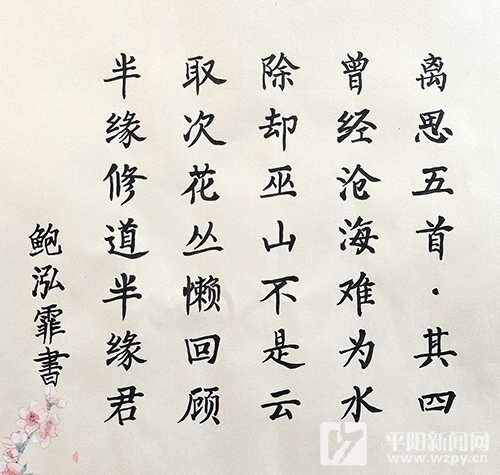 离思五首·其四
曾经沧海难为水
除却巫山不是云
取次花丛懒回顾
半缘修道半缘君
鲍泓霏書
平阳新闻网
www.wzpy.cn